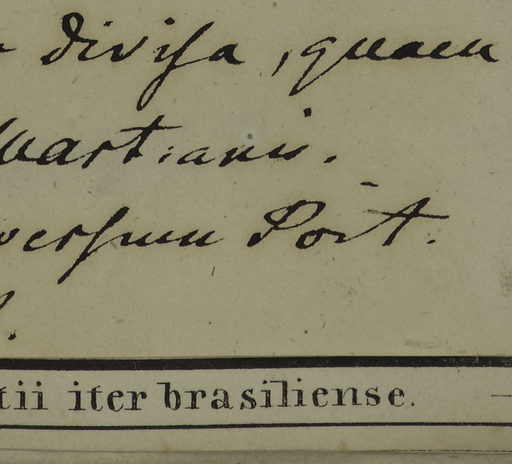 divisa, quam
Martianis.
versum Port.
tii iter brasiliense.